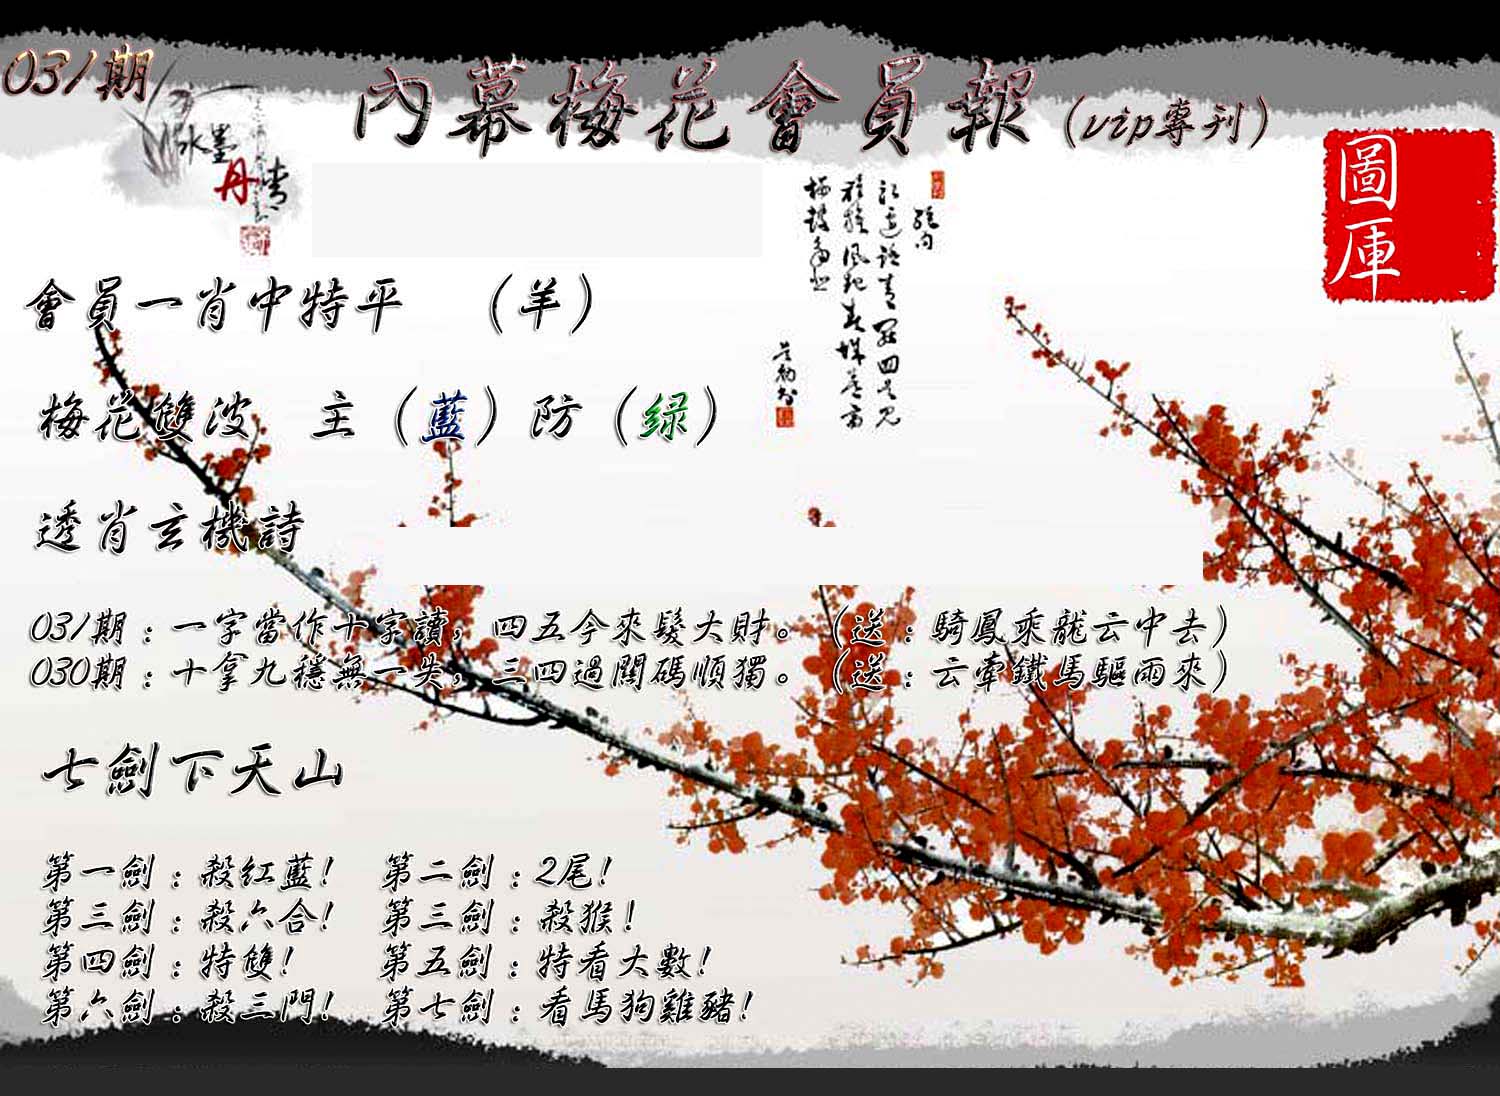 031期
內幕梅花會員報（vip專刊）
水墨
丹青
圖庫
會員一肖中特平　（羊）
梅花雙波　主（藍）防（绿）
透肖玄機詩
031期：一字當作十字讀，四五今來髮大財。（送：騎鳳乘龍云中去）
030期：十拿九穩無一失，三四過關碼順獨。（送：云牽鐵馬驅雨來）
七劍下天山
第一劍：殺红藍！　第二劍：2尾！
第三劍：殺六合！　第三劍：殺猴！
第四劍：特雙！　第五劍：特看大數！
第六劍：殺三門！　第七劍：看馬狗雞豬！